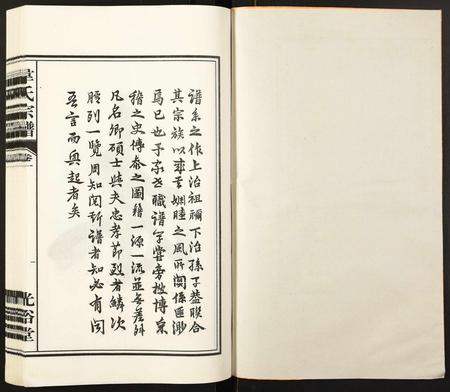 譜系之作上治祖禰下治孫子蓋聯合
其宗族以率其姻睦之風所關係匪渺
焉已也予家世職譜學嘗旁搜博采
稽之史傳泰之圖籍一源一流並無差舛
凡名卿碩士與夫忠孝節烈者鱗次
臚列一覽周知閱斯譜者知必有聞
吾言而興起者矣
氏宗譜
卷
一
光裕堂